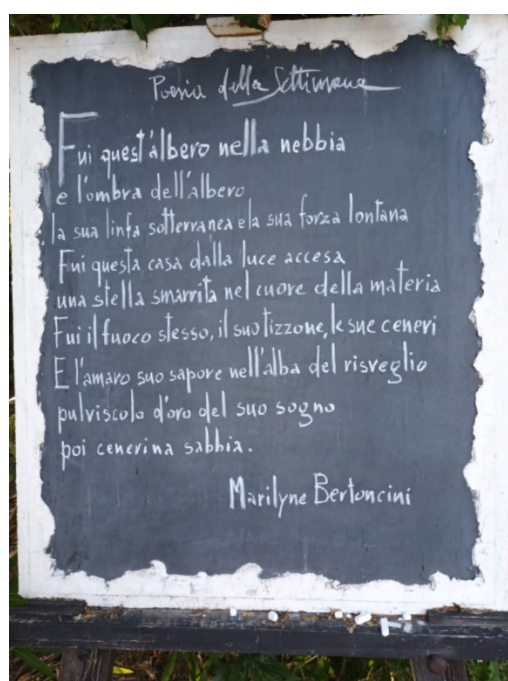 Poesia della Settimana
Fui quest'albero nella nebbia
e l'ombra dell'albero
la sua linfa sotterranea e la sua forza lontana
Fui questa casa dalla luce accesa
una stella smarrita nel cuore della materia
Fui il fuoco stesso, il suo tizzone, le sue ceneri
E l'amaro suo sapore nell'alba del risveglio
pulviscolo d'oro del suo sogno
poi cenerina sabbia.
Marilyne Bertoncini